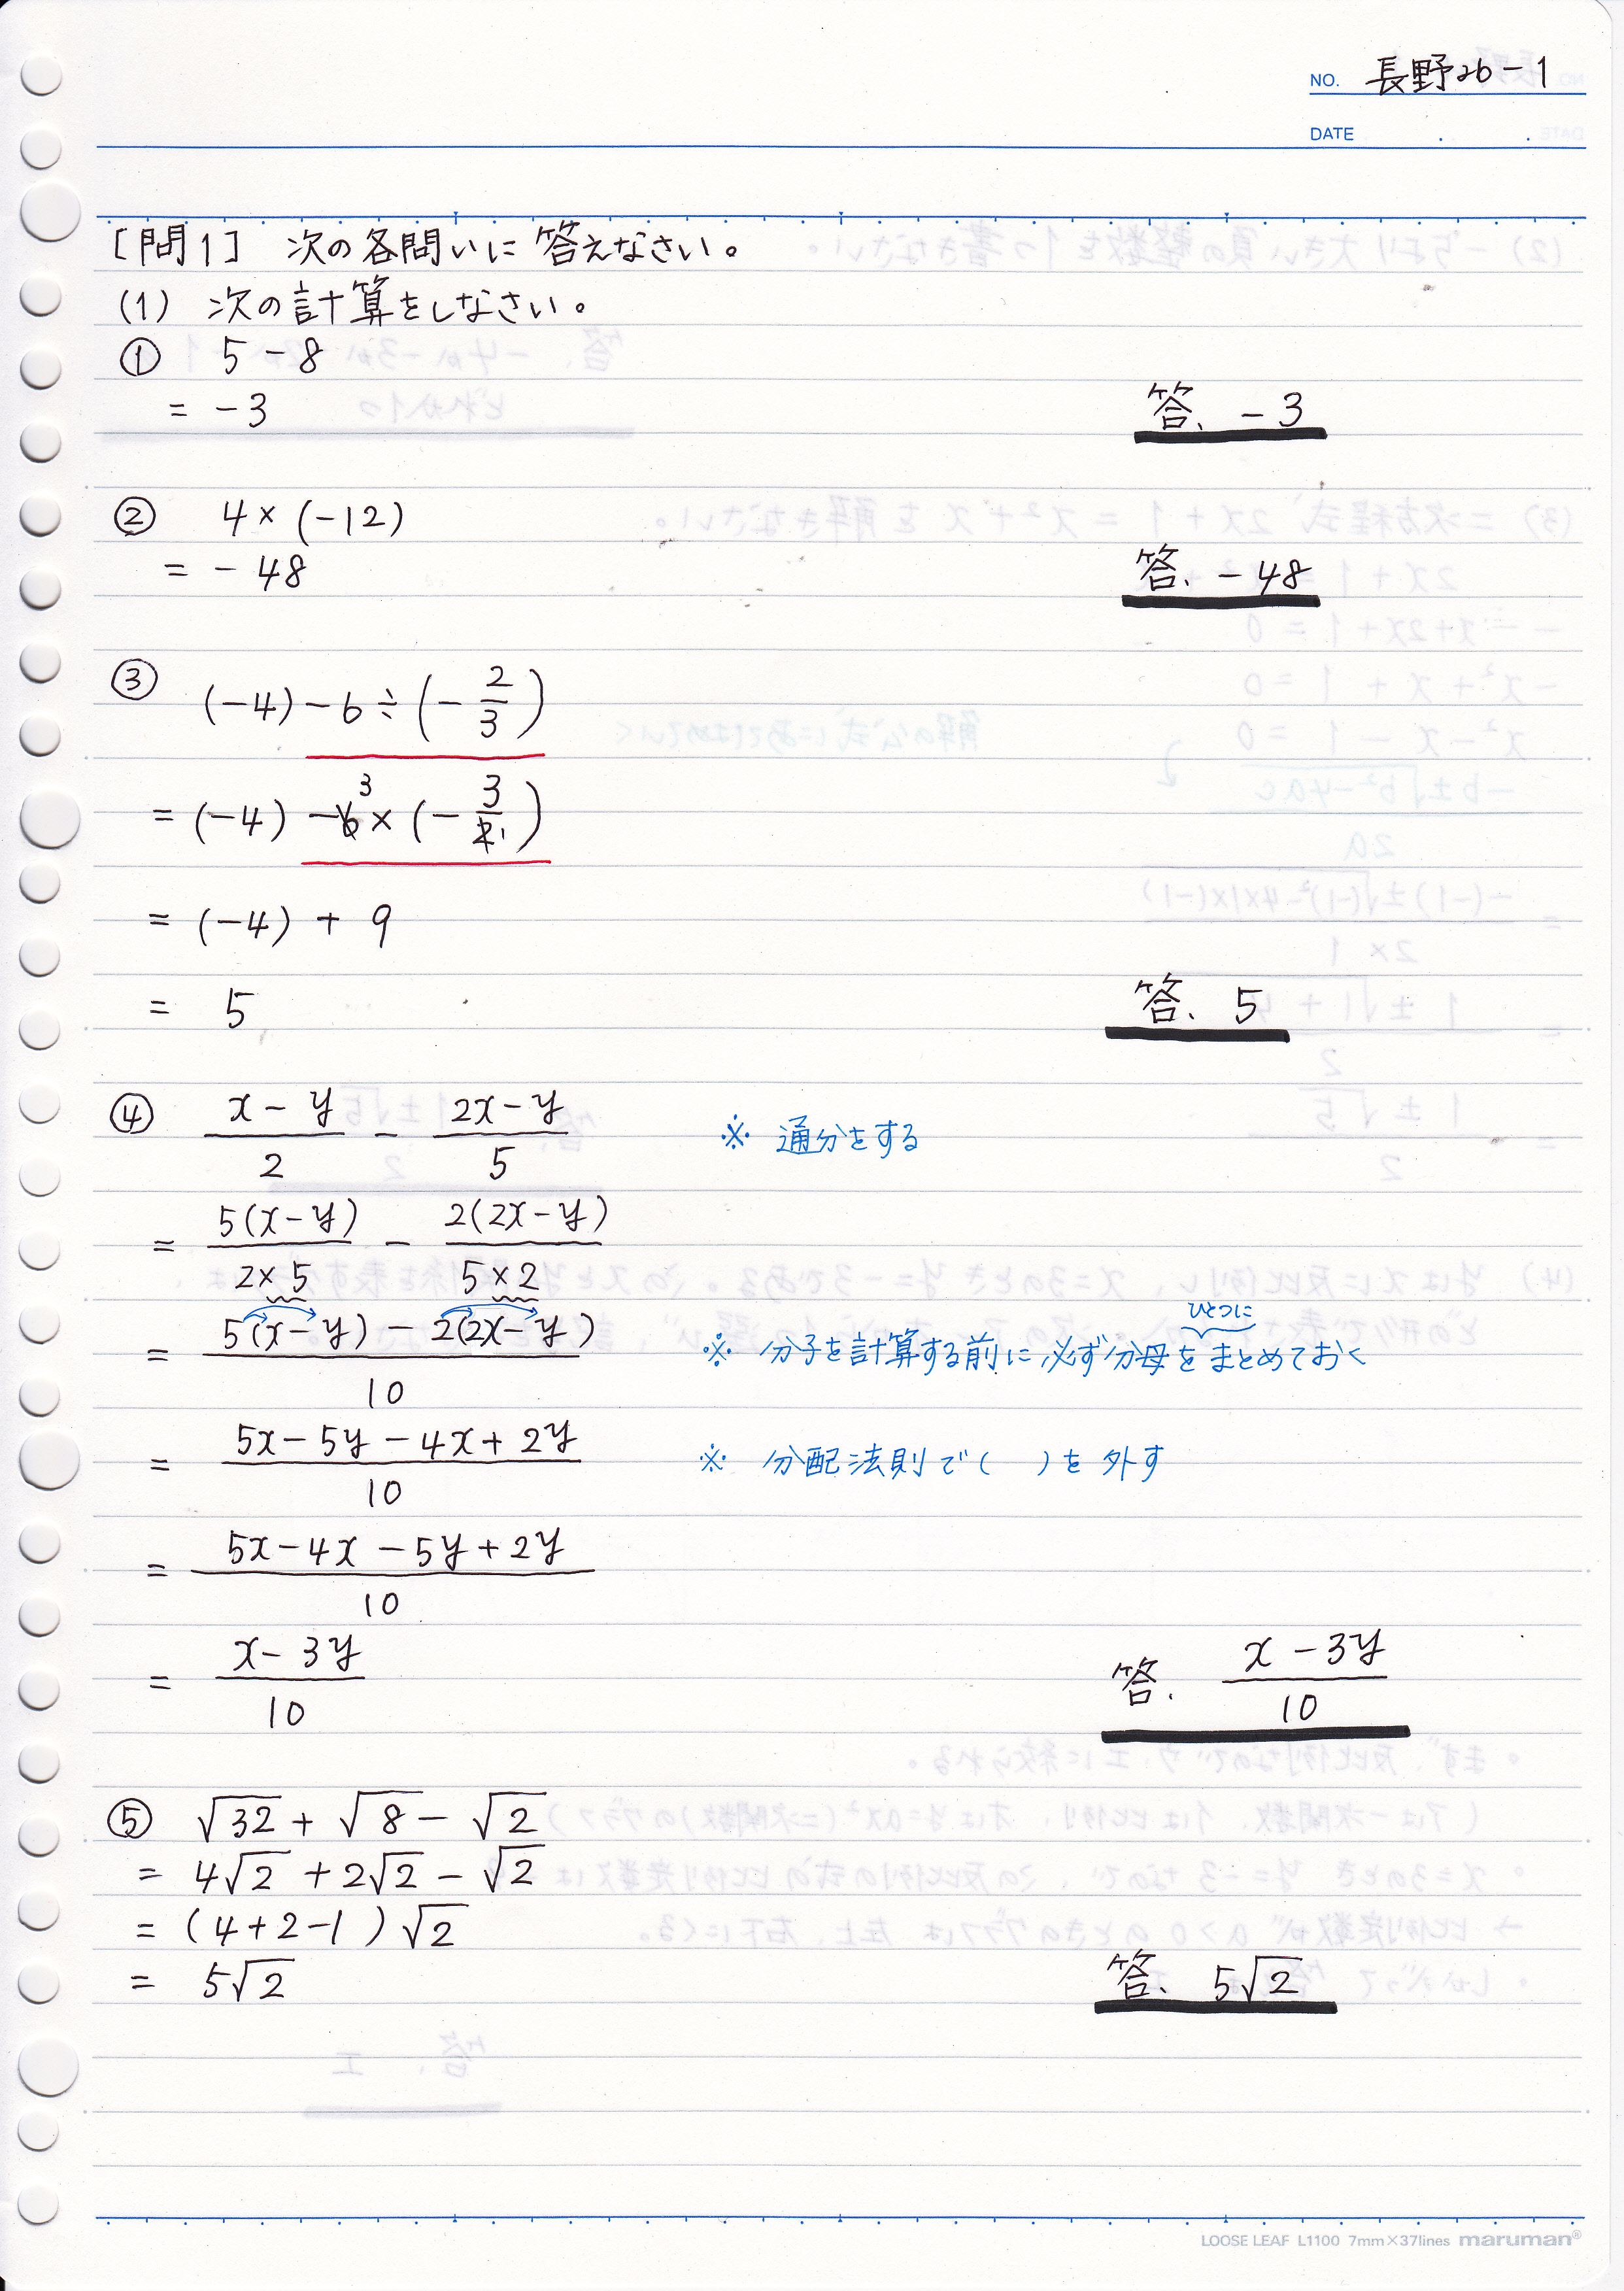 NO. 長野26-1
DATE . .
[問1] 次の各問いに答えなさい。
(1) 次の計算をしなさい。
① 5-8
= -3
答、-3
② 4×(-12)
= -48
答、-48
③ (-4)-6÷(-2/3)
= (-4)-6×(-3/2) 3 1
= (-4)+9
= 5
答、5
④ (x-y)/2 - (2x-y)/5 ※ 通分をする
= 5(x-y)/(2×5) - 2(2x-y)/(5×2)
ひとつに
= (5(x-y)-2(2x-y))/10 ※ 分子を計算する前に、必ず分母をまとめておく
= (5x-5y-4x+2y)/10 ※ 分配法則で( )を外す
= (5x-4x-5y+2y)/10
= (x-3y)/10
答、(x-3y)/10
⑤ √32+√8-√2
= 4√2+2√2-√2
= (4+2-1)√2
= 5√2
答、5√2
LOOSE LEAF L1100 7mm×37lines maruman®